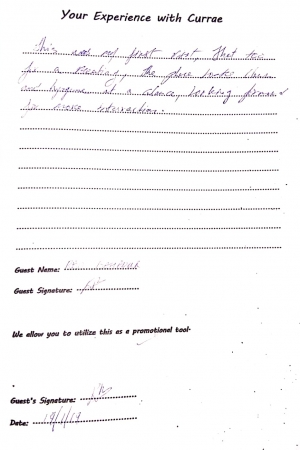 Your Experience with Currae
This was my first visit, that too
for a meeting, the place looks clean
and hygiene at a glance, looking forward
for more interaction.
Guest Name:
Guest Signature:
We allow you to utilize this as a promotional tool-
Guest's Signature:
Date: 19/1/19